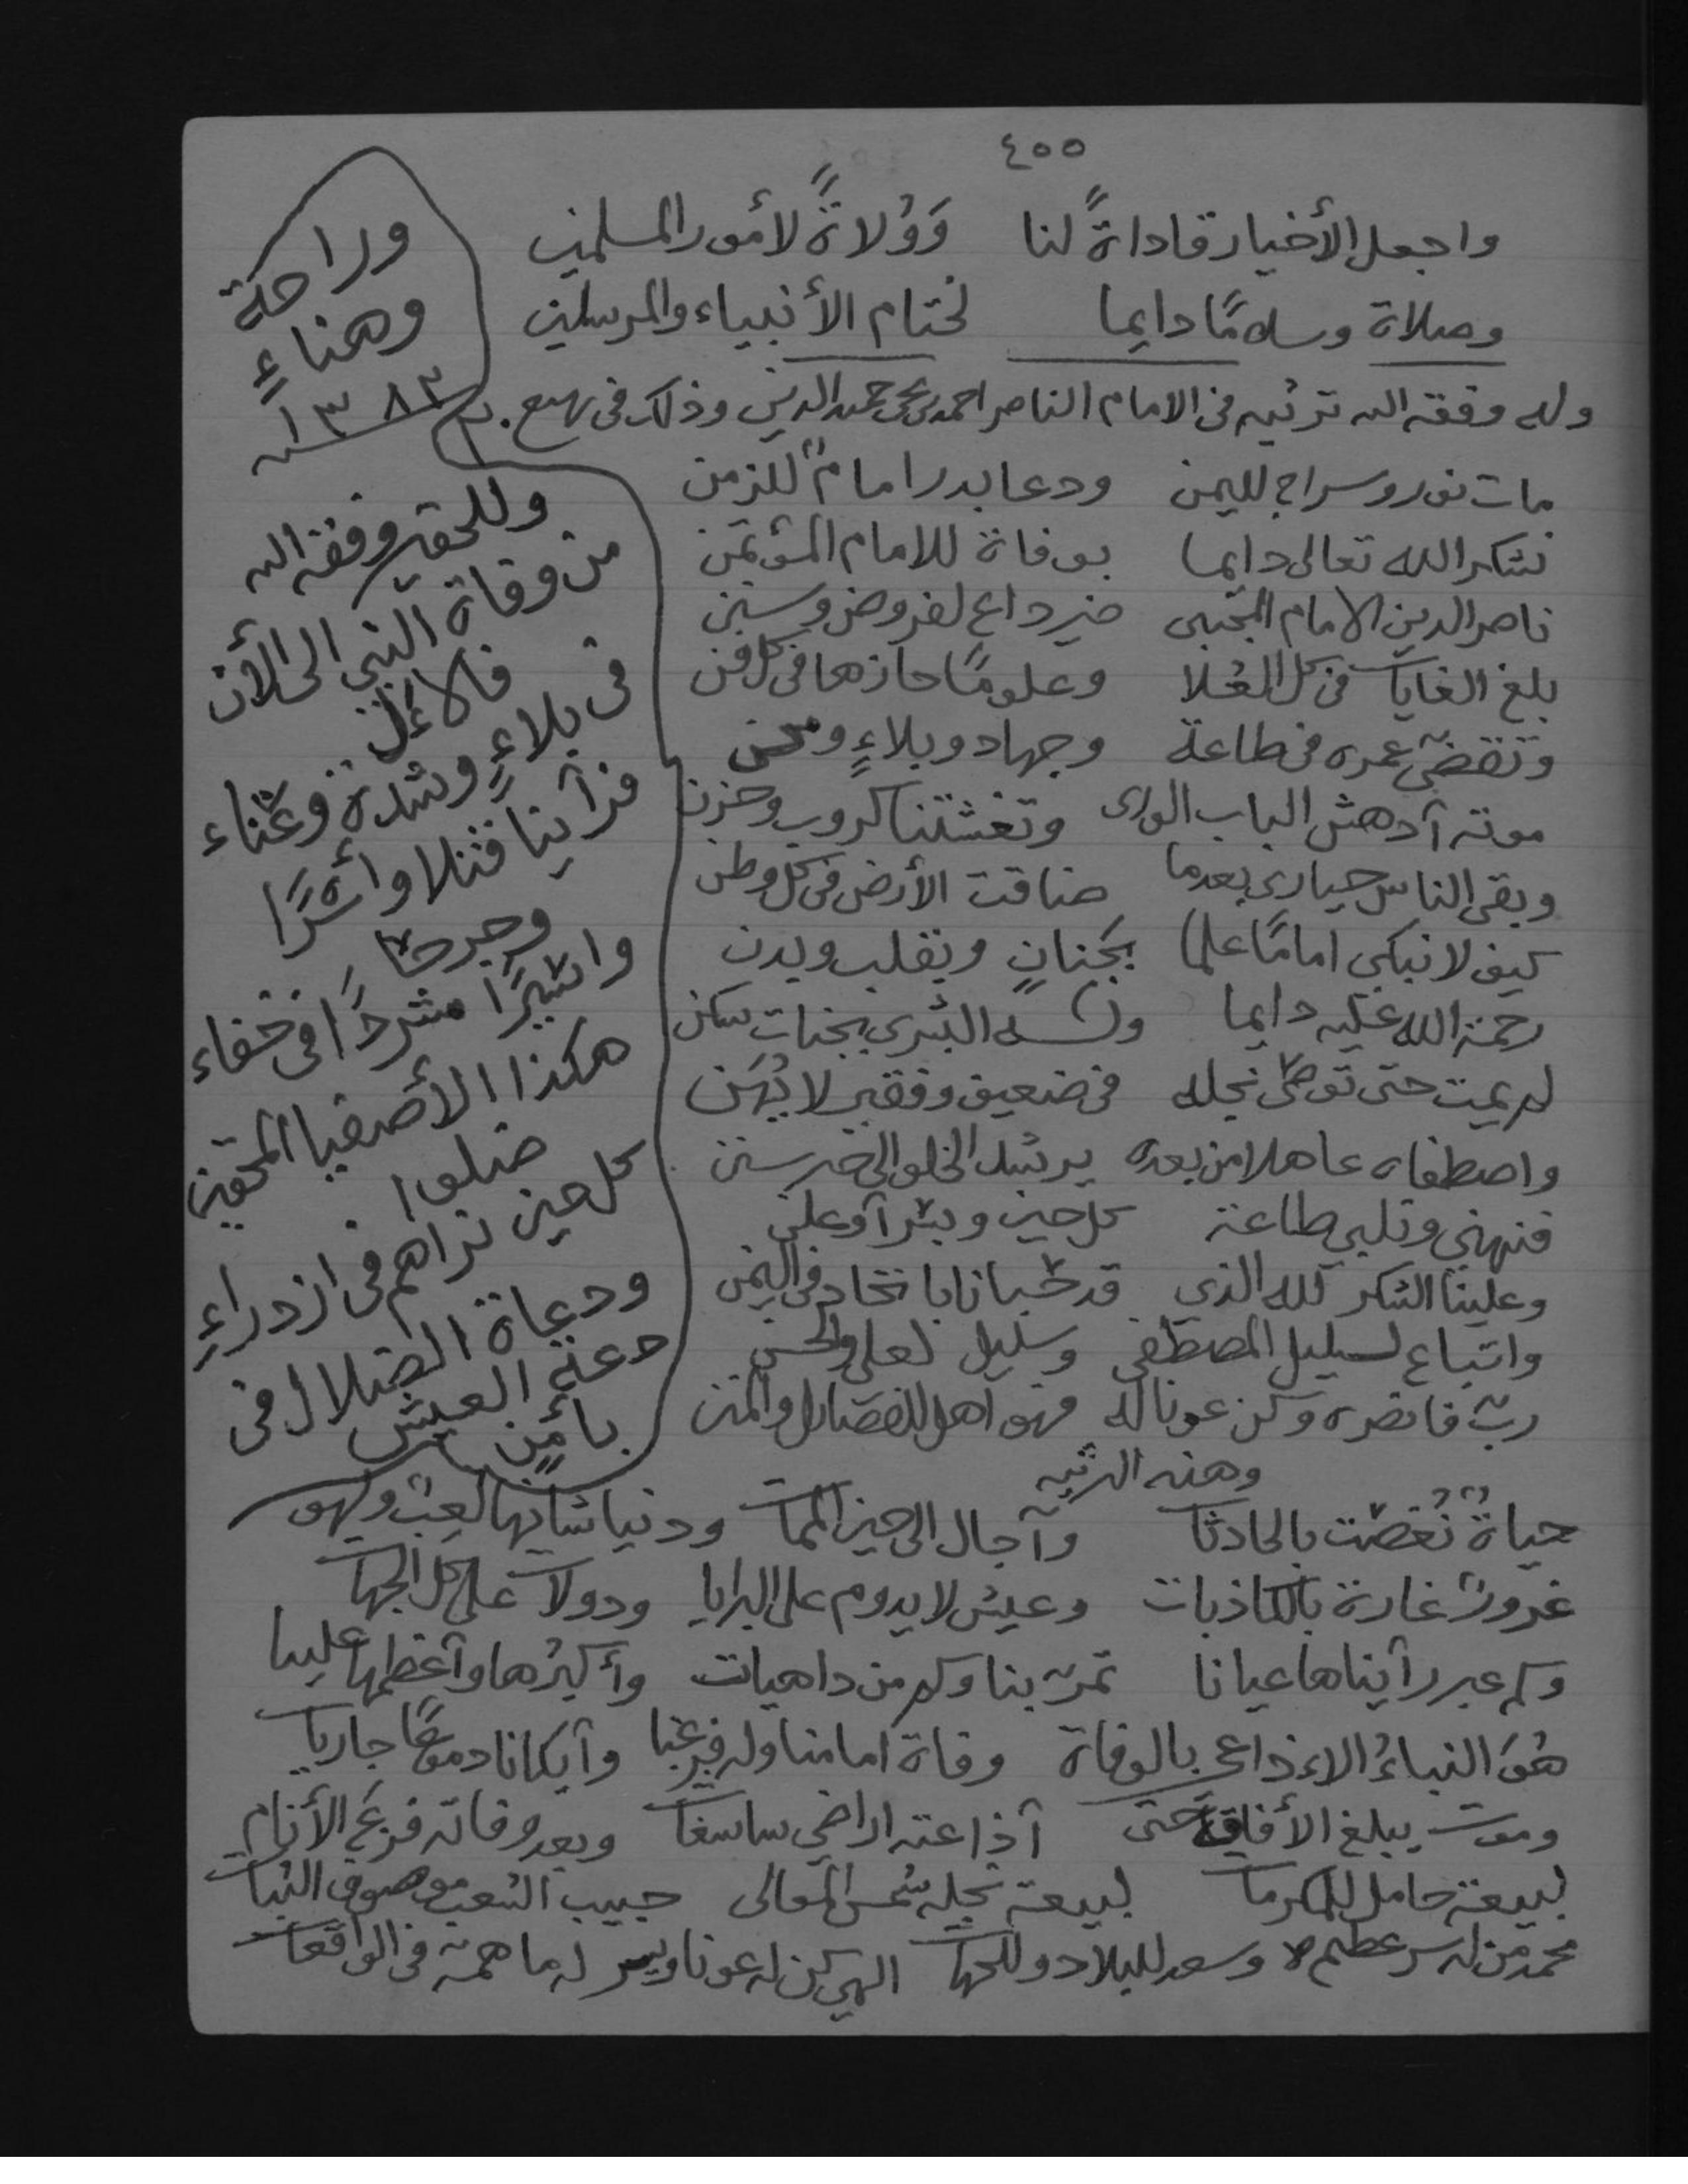 ٤٥٥
واجعل الأخيار قاداةً لنا وَوُلاةً لأمور المسلمين
وصلاة وسلامًا دايما لختام الأنبياء والمرسلين
وله وفقه الله ترثيه في الامام الناصر احمد بن يحيى حميد الدين وذلك في
مات نور وسراج لليمن ودعا بدر امامٌ للزمن
نشكر الله تعالى دايما بوفاة للامام المؤتمن
ناصر الدين الامام المجتبى خير داع لفروض وسنن
بلغ الغايات في كل العُلا وعلومًا حازها في كل فن
وتقضّى عمره في طاعة وجهاد وبلاءٍ ومحن
موته آدهش الباب الورى وتغشتنا كروب وحزن
وبقي الناس حيارى بعدما ضاقت الأرض في كل وطن
كيف لا نبكي امامًا علما بجَنانٍ وبقلب وبدن
رحمة الله عليه دايما وله البشرى بجنات سكن
لم يمت حتى توصّى نجله في ضعيف وفقير لا يُهَن
واصطفاه عاهلا من بعده يرشد الخلق الى خير سنن
فنهني ونلبي طاعة كل حين وبسرآ وعلن
وعلينا الشكر لله الذي قد حبانا باتحاد في اليمن
واتباع لسليل المصطفى وسليل لعلي والحسن
ربّ فانصره وكن عونا له فهو اهل للفضايل والمنن
وهذه الرثيه
حياةٌ نُغصّت بالحادثات وآجال الى حين الممات ودنيا شانها لعبٌ ولهو
غرورٌ غارة بالكاذبات وعيش لا يدوم على البرايا ودولات على كل الجهات
وكم عبر رآيناها عيانا تمرّ بنا وكم من داهيات وأكبرُها وآعظمها علينا
هُوَ النباءُ الاء ذاعي بالوفاة وفاة امامنا وآبكانا دموعًا جاريات
وموت يبلغ الأفاق حتى آذاعته اراضي وبعد وفاته فزع الأنام
لبيعة حامل للمكرمات لبيعة نجله شمس المعالى حبيب الشعب موصوف الثبات
محمد من له سر عظيم وسعد للبلاد وللجهات الهي كن له عونا ويسر له ما همه في الواقعات
وللحقير وفقه الله
من وفاة النبي الى الأن
فالاءل
في بلاءٍ وشدة وعناء
فرآينا قتلا وأسرًا
وجرحًا
واسيرًا مشردًا في خفاء
هكذا الأصفيا المحقين
ضلوا
كل حين تراهم في ازدراءٍ
ودعاة الضلال في
دعة العيش
بأمنٍ
وراحة
وهناءٍ
١٣٨٣